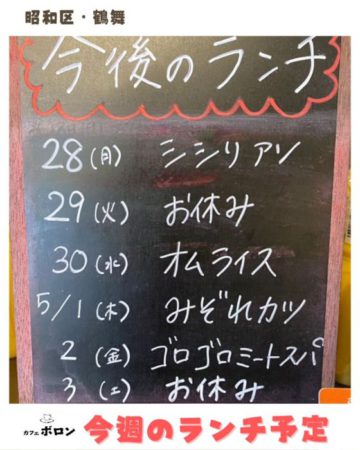 昭和区・鶴舞
今後のランチ
28(月) シシリアン
29(火) お休み
30(水) オムライス
5/1(木) みぞれカツ
2(金) ゴロゴロミートスパ
3(土) お休み
カフェ ボロン
今週のランチ予定